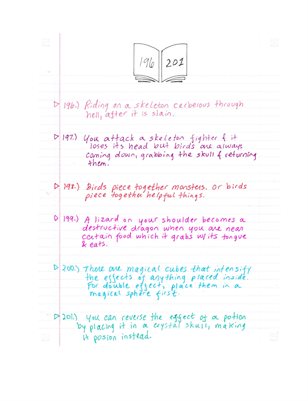 196 201
▷ 196.) Riding on a skeleton cerberous through
hell, after it is slain.
▷ 197.) You attack a skeleton fighter &
loses its head but birds are always
coming down, grabbing the skull & returning
them.
▷ 198.) Birds piece together monsters. Or birds
piece together helpful things.
▷ 199.) A lizard on your shoulder becomes a
destructive dragon when you are near
certain food which it grabs w/its tongue
& eats.
▷ 200.) There are magical cubes that intensify
the effects of anything placed inside.
For double effect, place them in a
magical sphere first.
▷ 201.) You can reverse the effect of a potion
by placing it in a crystal skull, making
it poison instead.